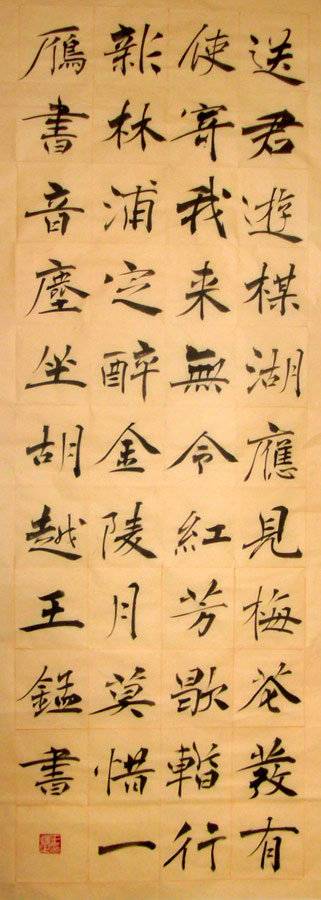 送君遊楳湖應見梅花發有
使寄我来無令紅芳歇暫行
新林浦定醉金陵月莫惜一
鴈書音塵坐胡越王錳書